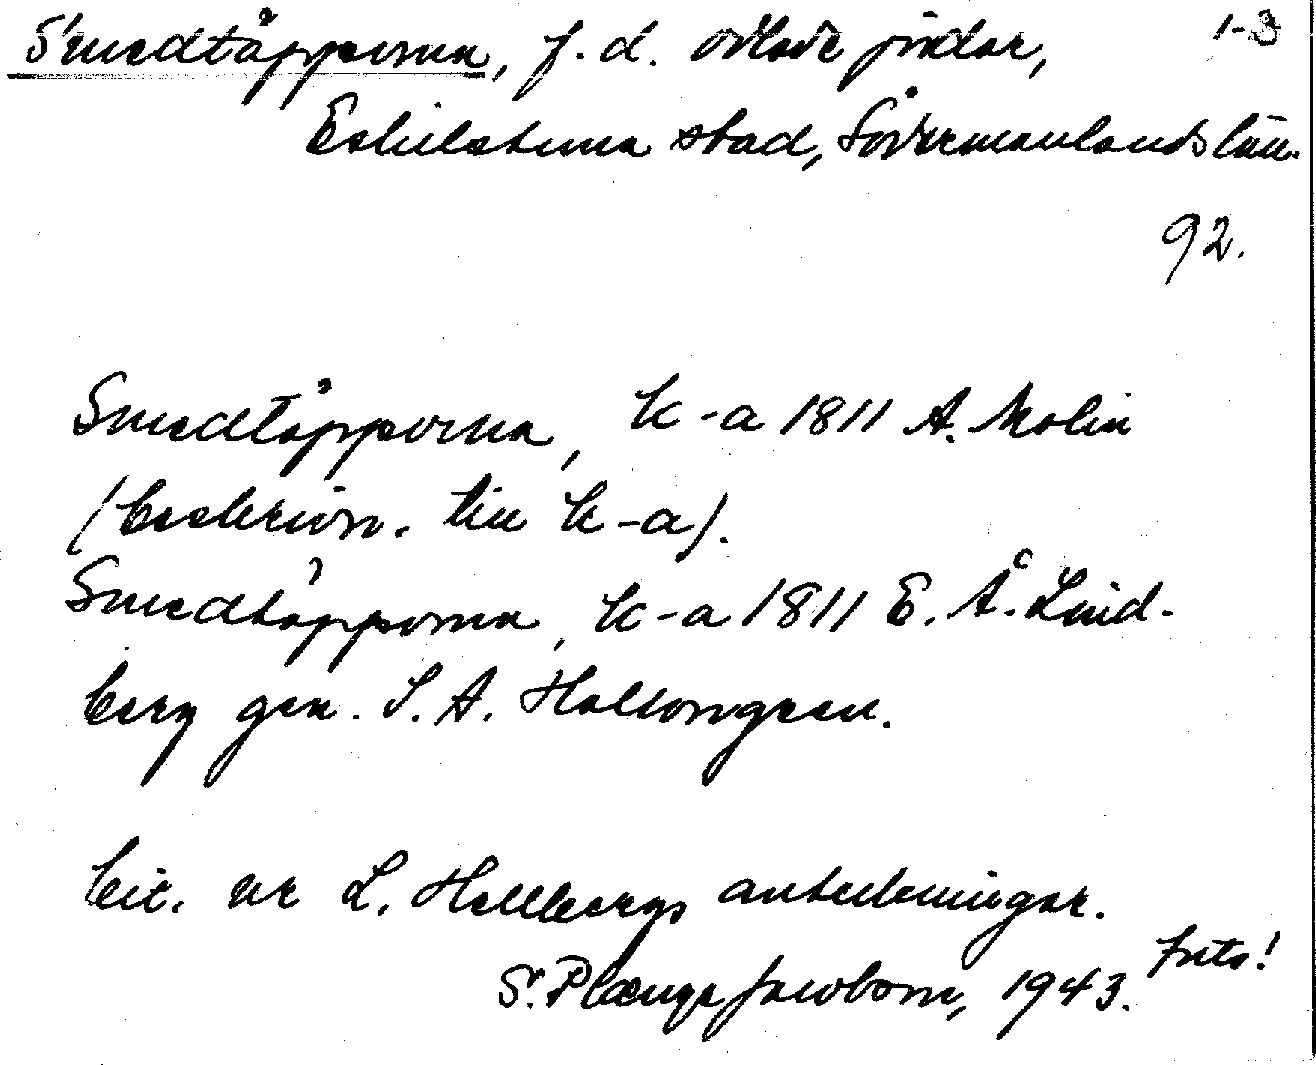 Smedtåpporna, f.d. odlade jordar, 1-3
Eskilstuna stad, Södermanlands län.
92.
Smedtåpporna, k-a 1811 A. Molin
(beskrivn. till k-a).
Smedtåpporna, k-a 1811 E. Å. Lind-
berg gen. S. A. Hallongren.
cit. ur L. Hellbergs anteckningar.
foto!
S. Plænge Jacobson, 1943.